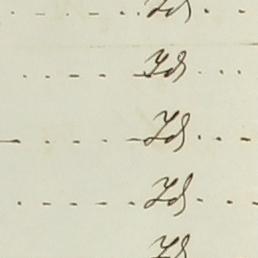 Id
Id
Id
Id
Id